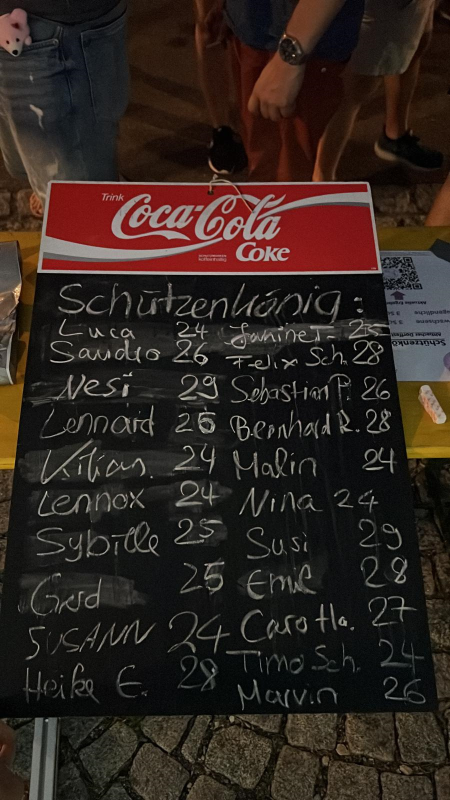 Trink
Coca-Cola
Coke
koffeinhaltig
Schützenkönig:
Luca 24
Sandro 26
Nesi 29
Lennard 26
Kilian. 24
Lennox 24
Sybille 25
Gerd 25
SUSANN 24
Heike E. 28
Janine T. 25
Felix Sch. 28
Sebastian P. 26
Bernhard R. 28
Malin 24
Nina 24
Susi 29
Emil 28
Caro Ha. 27
Timo Sch. 24
Marvin 26